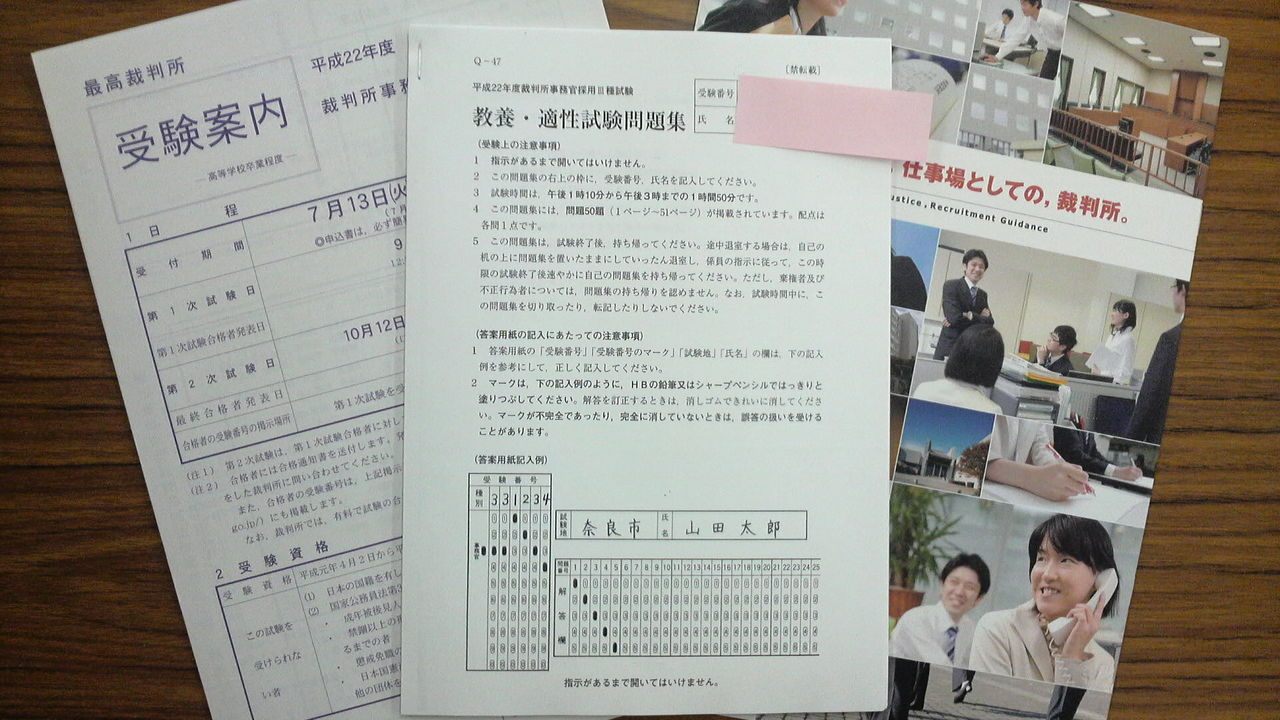 最高裁判所
平成22年度
受験案内
裁判所事務
高等学校卒業程度
1 日 程
受付期間
7月13日(火
◎申込書は、必ず簡
第1次試験日
9
第1次試験合格者発表日
第2次試験日
10月12日
最終合格者発表日
合格者の受験番号の掲示場所
第1次試験を受
(注1) 第2次試験は、第1次試験合格者に対し
(注2) 合格者には合格通知書を送付します。発
をした裁判所に問い合わせてください。
また、合格者の受験番号は、上記掲示
go.jp/)にも掲載します。
なお、裁判所では、有料で試験の合
2 受験資格
受験資格
平成元年4月2日から平
この試験を
受けられな
い者
(1) 日本の国籍を有し
(2) 国家公務員法第3
・ 成年被後見人
・ 禁錮以上の刑
るまでの者
・ 懲戒免職の
・ 日本国憲
他の団体を
Q-47
〔禁転載〕
平成22年度裁判所事務官採用Ⅲ種試験
教養・適性試験問題集
受験番号
氏 名
(受験上の注意事項)
1 指示があるまで開いてはいけません。
2 この問題集の右上の枠に、受験番号、氏名を記入してください。
3 試験時間は、午後1時10分から午後3時までの1時間50分です。
4 この問題集には、問題50題(1ページ~51ページ)が掲載されています。配点は
各問1点です。
5 この問題集は、試験終了後、持ち帰ってください。途中退室する場合は、自己の
机の上に問題集を置いたままにしていったん退室し、係員の指示に従って、この時
限の試験終了後速やかに自己の問題集を持ち帰ってください。ただし、棄権者及び
不正行為者については、問題集の持ち帰りを認めません。なお、試験時間中に、こ
の問題集を切り取ったり、転記したりしないでください。
(答案用紙の記入にあたっての注意事項)
1 答案用紙の「受験番号」「受験番号のマーク」「試験地」「氏名」の欄は、下の記入
例を参考にして、正しく記入してください。
2 マークは、下の記入例のように、HBの鉛筆又はシャープペンシルではっきりと
塗りつぶしてください。解答を訂正するときは、消しゴムできれいに消してくださ
い。マークが不完全であったり、完全に消していないときは、誤答の扱いを受ける
ことがあります。
(答案用紙記入例)
受験番号
種別 3 3 1 2 3 4
事務官
試験地 奈良市 氏名 山田太郎
問題番号 1 2 3 4 5 6 7 8 9 10 11 12 13 14 15 16 17 18 19 20 21 22 23 24 25
解答欄
指示があるまで開いてはいけません。
仕事場としての,裁判所。
ustice, Recruitment Guidance